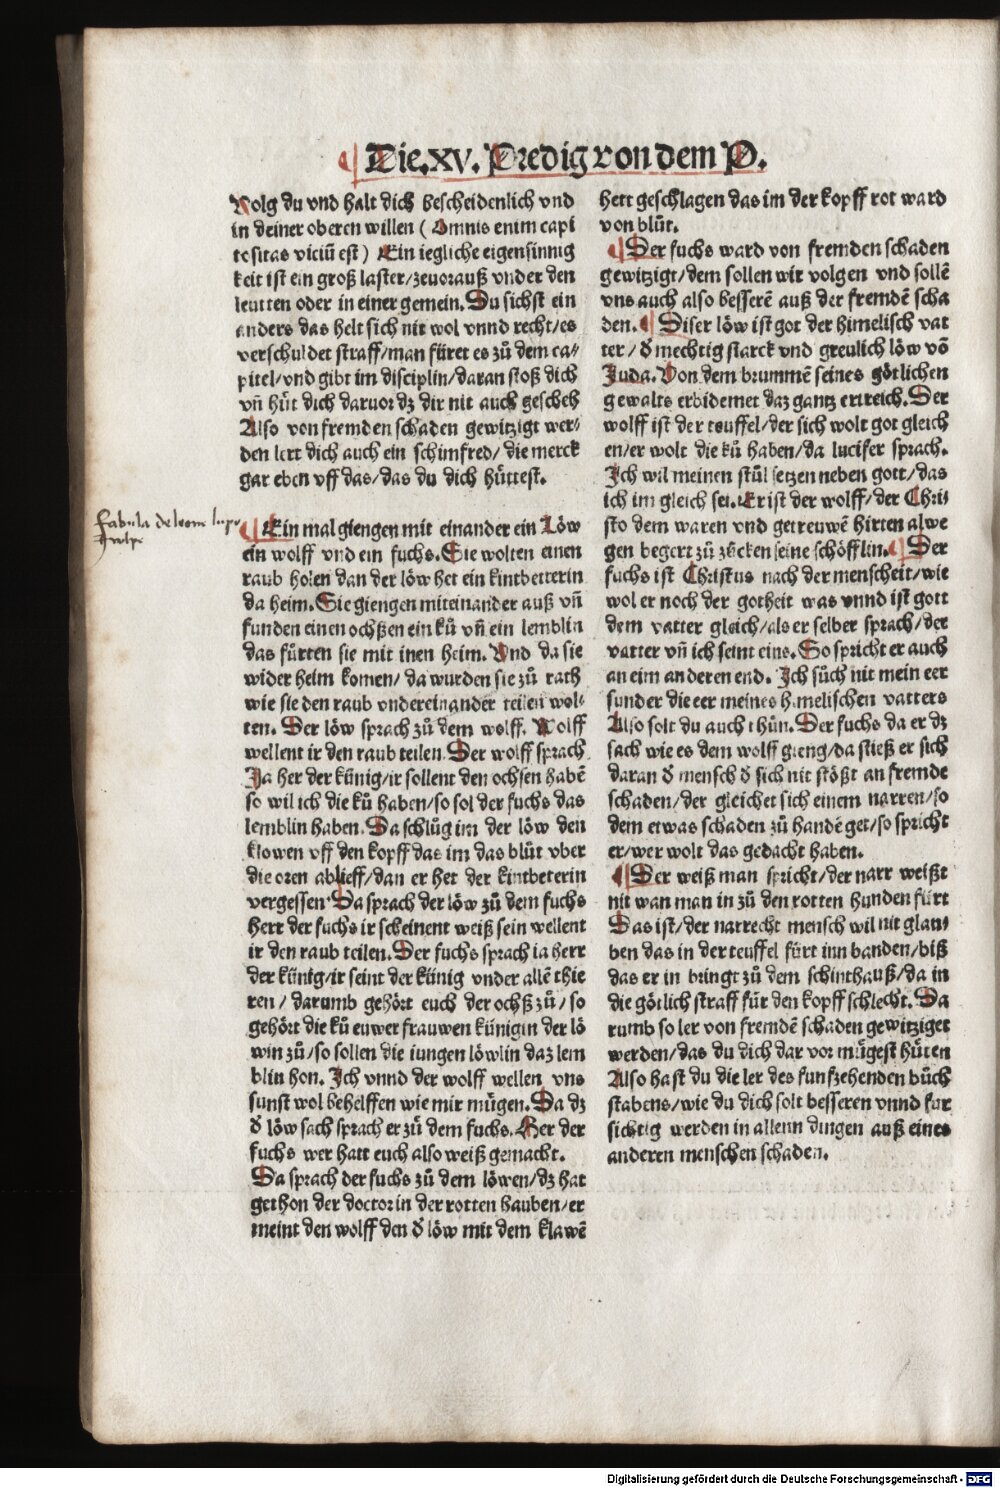 Die.xv. Predig von dem P.
Volg du vnd halt dich bescheidenlich vnd
in deiner oberen willen ( Omnis enim capi
tositas viciū est ) Ein iegliche eigensinnig
keit ist ein groß laster/zeuorauß vnder den
leutten oder in einer gemein. Du sichst ein
anders das helt sich nit wol vnnd recht/es
verschuldet straff/man füret es zů dem ca⸗
pitel/vnd gibt im disciplin/daran stoß dich
vñ hüt dich daruor dz dir nit auch gescheh
Also von fremden schaden gewitzigt wer⸗
den lert dich auch ein schimfred/ die merck
gar eben vff das/das du dich hüttest.
fabula de leone lupo
et vulpe
Ein mal giengen mit einander ein Löw
ein wolff vnd ein fuchs. Sie wolten einen
raub holen dan der löw het ein kintbetterin
da heim. Sie giengen miteinander auß vñ
funden einen ochßen ein ků vñ ein lemblin
das fürten sie mit inen heim. Vnd da sie
wider heim komen/ da wurden sie zů rath
wie sie den raub vndereinander teilen wol⸗
ten. Der löw sprach zů dem wolff. Wolff
wellent ir den raub teilen. Der wolff sprach
Ja her der künig/ir sollent den ochsen habē
so wil ich die ků haben/so sol der fuchs das
lemblin haben. Da schlůg im der löw den
klowen vff den kopff das im das blůt vber
die oren ablieff/dan er het der kintbeterin
vergessen. Da sprach der löw zů dem fuchs
Herr der fuchs ir scheinent weiß sein wellent
ir den raub teilen. Der fuchs sprach ia herr
der künig/ir seint der künig vnder allē thie
ren / darumb gehört euch der ochß zů/ so
gehört die ků euwer frauwen künigin der lö
win zů/so sollen die iungen löwlin daz lem
blin hon. Ich vnnd der wolff wellen vns
sunst wol behelffen wie mir mügen. Da dz
ð löw sach sprach er zů dem fuchs. Her der
fuchs wer hatt euch also weiß gemacht.
Da sprach der fuchs zů dem löwen/dz hat
gethon der doctor in der rotten hauben/er
meint den wolff den ð löw mit dem klawē
hett geschlagen das im der kopff rot ward
von blůt.
Der fuchs ward von fremden schaden
gewitzigt/dem sollen wir volgen vnd sollē
vns auch also besserē auß der fremdē scha
den. Diser löw ist got der himelisch vat
ter/ ð mechtig starck vnd greulich löw vō
Juda. Von dem brummē seines götlichen
gewalts erbidemet daz gantz ertreich. Der
wolff ist der teuffel/der sich wolt got gleich
en/er wolt die ků haben/da lucifer sprach.
Ich wil meinen stůl setzen neben gott/das
ich im gleich sei. Er ist der wolff/der Chri⸗
sto dem waren vnd getreuwē hirten alwe
gen begert zů zucken seine schöfflin. Der
fuchs ist Christus nach der menscheit/wie
wol er noch der gotheit was vnnd ist gott
dem vatter gleich/als er selber sprach/der
vatter vñ ich seint eins. So spricht er auch
an eim anderen end. Ich sůch nit mein eer
sunder die eer meines himelischen vatters
Also solt du auch thůn. Der fuchs da er dz
sach wie es dem wolff gieng/da stieß er sich
daran ð mensch ð sich nit stößt an fremde
schaden/der gleichet sich einem narren/so
dem etwas schaden zů handē get/so spricht
er/wer wolt das gedacht haben.
Der weiß man spricht/der narr weißt
nit wan man in zů den rotten hunden fürt
Das ist/der narrecht mensch wil nit glau⸗
ben das in der teuffel fürt inn banden/biß
das er in bringt zů dem schinthauß/da in
die götlich straff für den kopff schlecht. Da
rumb so ler von fremdē schaden gewitziget
werden/das du dich dar vor mügest hüten
Also hast du die ler des funfzehenden bůch
stabens/wie du dich solt besseren vnnd fur
sichtig werden in allenn dingen auß eines
anderen menschen schaden.
Digitalisierung gefördert durch die Deutsche Forschungsgemeinschaft - DFG